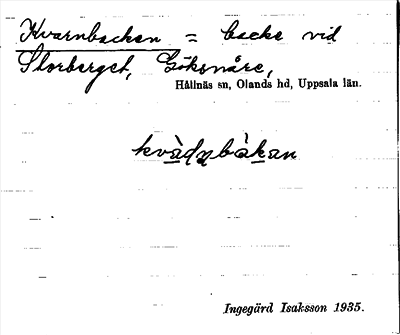 Kvarnbacken = backe vid
Storberget, Göksnåre,
Hållnäs sn, Olands hd, Uppsala län.
kvàdn̥bàkan
Ingegärd Isaksson 1935.